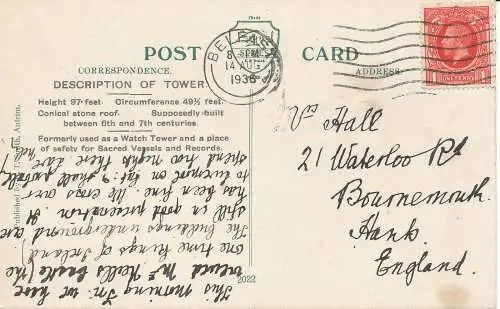 TRADE
POST CARD
CORRESPONDENCE.
ADDRESS.
DESCRIPTION OF TOWER.
Height 97 feet. Circumference 49½ feet.
Conical stone roof. Supposedly built
between 6th and 7th centuries.
Formerly used as a Watch Tower and a place
of safety for Sacred Vessels and Records.
This morning I'm we have
viewed Mc Neills Castle (the
one time kings of Ireland)
The buildings underground are
still in good preservation. It
has been fine the cross over
to Turcout on Sat: & shall probably
spend two nights there
BELFAST
8
14 AUG
1936
ONE PENNY
Hall
21 Waterloo Rd
Bournemouth.
Hank.
England.
Published by
Antrim.
2022